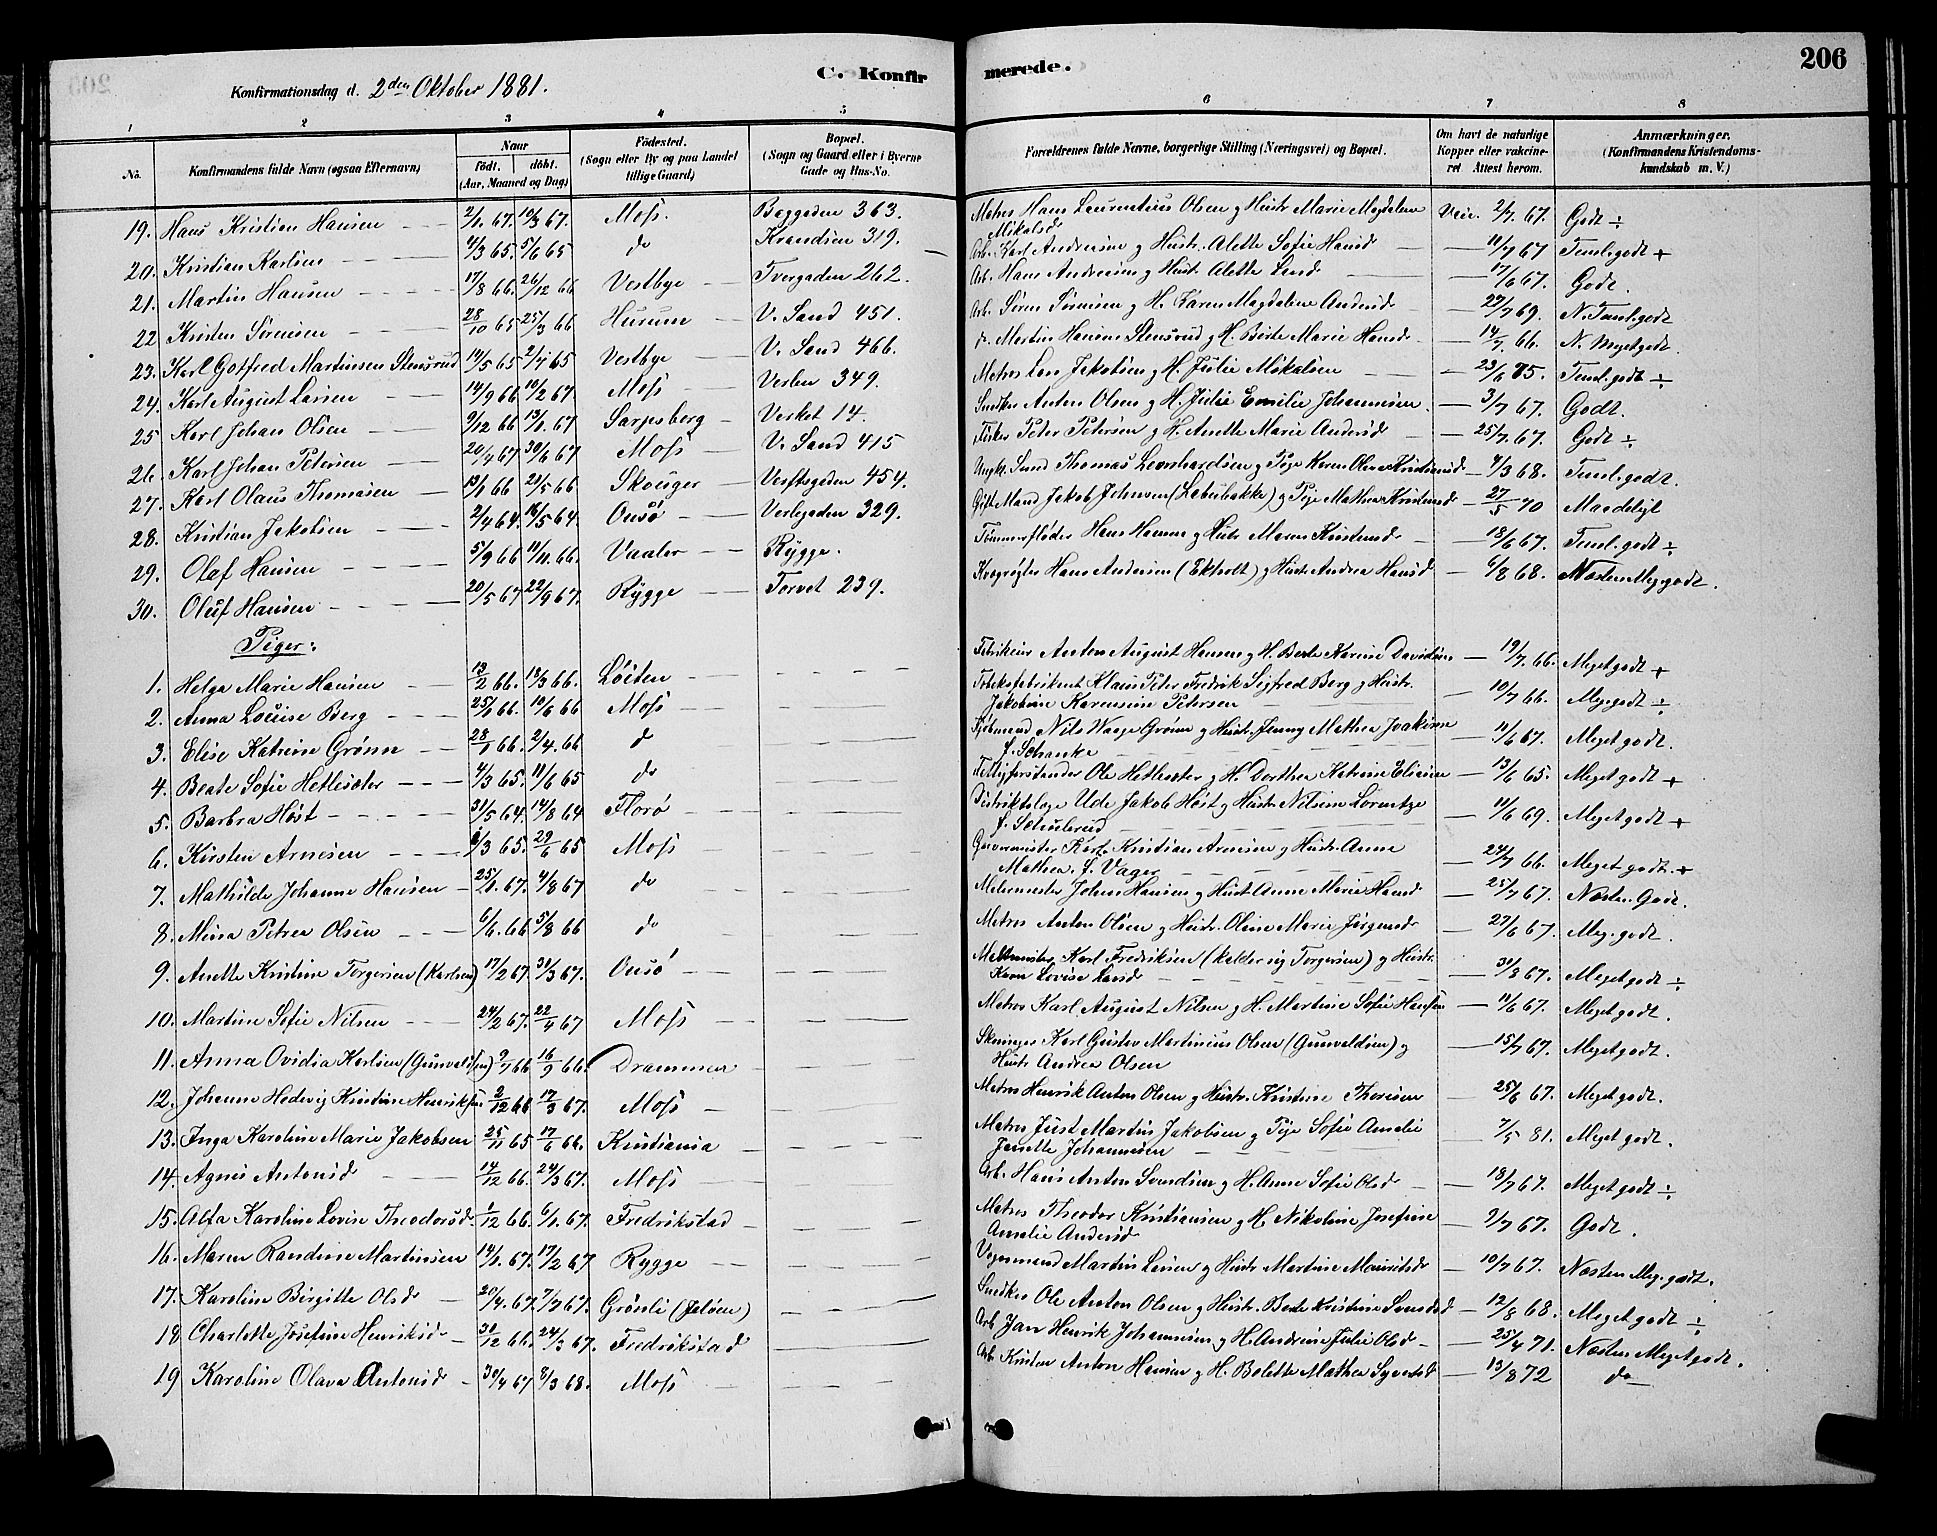 C. Konfirmerede.
206
Konfirmationsdag d. 2den Oktober 1881.
1 2 3 4 5 6 7 8
No. Konfirmandens fulde Navn (ogsaa Efternavn) Naar födt. döbt. (Aar, Maaned og Dag) Födested. (Sogn eller By og paa Landet tillige Gaard) Bopæl. (Sogn og Gaard eller i Byerne Gade og Hus-No. Forældrenes fulde Navne, borgerlige Stilling (Næringsvei) og Bopæl. Om havt de naturlige Kopper eller vakcineret Attest herom. Anmærkninger. (Konfirmandens Kristendomskundskab m. V.)
19. Hans Kristian Hansen 2/1 67. 10/3 67. Moss. 363. Matros Hans Laurentius Olsen g Hustr Marie Magdalene Mikalsd 2/7. 67. Godt ÷
20. Kristian Karlsen 4/3 65. 5/6 65 do 319. Arb. Karl Andreasen g Hustr. Alette Sofie Hansd 11/7 67 Teml. godt +
21. Martin Hansen 17/8 66. 26/12 66 Vestbye Tvergaden 262. Arb. Hans Andersen g Hustr Alette 17/6 67. Godt.
22 Kristen Sørensen 28/10 65 25/3 66 Hurum V. Sand 451. Arb. Søren Sørensen g H. Karen Magdalene Andersd 22/7 69. N. Teml. godt
23. Karl Gotfred Martinsen Stensrud 14/5 65 2/7 65 Vestbye V. Sand 466. Martin Hansen Stensrud g H. Berte Marie Hansd 14/7. 66. N. Meget godt.
24. Karl August Larsen 14/9 66 10/2 67. Moss Verlen 349. Matros Lars Jakobsen g H. Julie Mikalsen 23/6 75. Teml. godt ÷
25 Karl Johan Olsen 9/12 66 13/1. 67 Sarpsborg Verket 14. Snedker Anton Olsen g H. Julie Emilie Johannesen. 3/7 67. Godt.
26. Karl Johan Petersen 20/4 67 30/6 67 Moss V. Sand 415 Fisker Peter Petersen g H. Anette Marie Andersd 25/7. 67. Godt ÷
27. Karl Olaus Thomasen 13/1 66 21/5 66 Skouger Verftsgaden 454. Ungk. Thomas Leonhardsen g Pige Karen Oline Kristiansd 4/3 68. Teml. godt.
28. Kristian Jakobsen 2/4 64. 16/5 64. Onsø Verlegaden 329. Gift Mand Jakob Johnsen g Pige Mathea Kristensd 27/5 70 Maadeligt
29. Olaf Hansen 5/9 66 11/11. 66. Vaaler Rygge. Tømmerfløder Hans Hansen g Hustr Maren Kristensd 18/6 67. Teml. godt ÷
30. Oluf Hansen 20/5 67 22/9 67. Rygge Torvet 239. Kvægrøgter Hans Andersen (Ekholt) g Hustr Andrea Hansd 6/8 68. Næsten Meg. godt.
Piger:
1. Helga Marie Hansen 13/2 66. 18/3 66. Løiten Anton August Hansen g H. Berte Karine Davidsen 19/7. 66. Meget godt +
2. Anna Louise Berg 25/1 66. 10/6 66 Moss Tobaksfabrikant Klaus Peter Fredrik Sigfred Berg g Hustr. Jakobine Karensine Petersen 10/7 66. Meg. godt ÷
3. Elise Katrine Grønn 28/1 66. 2/4. 66 do Kjøbmand Nils Waage Grønn g Hustr. Jenny Mathea Joakime f. Schanke 11/6 67. Meget godt.
4. Beate Sofie Hetlesæter 4/3 65. 11/6 65 do Ole Hetlesæter g H. Dorthea Katrine Eliasen 13/6 65. Meget godt +
5. Barbra Høst 31/5 64. 14/8 64 Florø Distriktslæge Ude Jakob Høst g Hustr Nilsine Lorentze f. Schulerud 11/6 69. Meget godt +
6. Kirsten Arnesen 1/3 65. 29/6 65 Moss Garvermester Karl Kristian Arnesen g Hustr. Anne Mathea f. Vager 24/7 66. Meget godt. +
7. Mathilde Johanne Hansen 25/1. 67. 4/8 67 do Malermester Johan Hansen g Hustr Anne Marie Hansd 25/7 67. Næsten Godt.
8. Mina Petrea Olsen 6/6. 66 5/8 66 do Matros Anton Olsen g Hustr. Oline Marie Jørgensd 27/6 67. Meg. godt.
9. Anette Kristine Torgersen (Karlsen) 17/2 67. 31/3 67. Onsø Karl Fredriksen (kalder sig Torgersen) g Hustr. Karen Lovise Larsd 30/8 67. Meget godt ÷
10. Martine Sofie Nilsen 24/2 67. 22/4 67 Moss Matros Karl August Nilsen g H. Martine Sofie Hansen 11/6 67. Meget godt.
11. Anna Ovidia Karlsen (Gunvaldsen) 9/7 66 16/9 66. Drammen Karl Gustav Martinius Olsen (Gunvaldsen) g Hustr Andrea Olsen 15/7 67. Meget godt.
12. Johanne Hedevig Kristine Henriksen 2/12 66 17/3 67. Moss Matros Henrik Anton Olsen g Hustr. Kristine Thoresen 25/6 67. Meget godt.
13. Inga Karoline Marie Jakobsen 25/11 65 17/6 66. Kristiania Matros Just Martin Jakobsen g Pige Sofie Amalie Janette Johannesen 7/5 81. Meget godt.
14. Agnes Antonsd 14/12 66. 24/3 67. Moss Arb. Hans Anton Svendsen g H. Anne Sofie Olsd 18/7 67. Meget godt ÷
15. Alfa Karoline Lovise Theodorsd. 1/12 66. 6/1. 67. Fredrikstad Matros Theodor Kristiansen g H. Nikoline Josefine Amalie Andersd 2/7 67. Godt.
16. Maren Randine Martinsen 14/1. 67. 17/2 67 Rygge Vognmand Martin Larsen g Hustr Martine Mauritsd 10/7 67. Næsten Meg. godt.
17. Karoline Birgitte Olsd 20/4. 67. 7/7 67. Grønli (Jeløen) Snedker Ole Anton Olsen g Hustr. Berte Kristine Svensd 12/8 68. Meget godt ÷
18 Charlotte Josefine Henriksd 31/12 66. 24/3 67. Fredrikstad Arb. Jan Henrik Johannesen g H. Andrine Julie Olsd 25/4 71. Næsten Meget godt.
19 Karoline Olava Antonsd 30/4 67 8/3 68. Moss Arb. Kristen Anton Hansen g H. Bolette Mathea Syversd 13/8 72 do